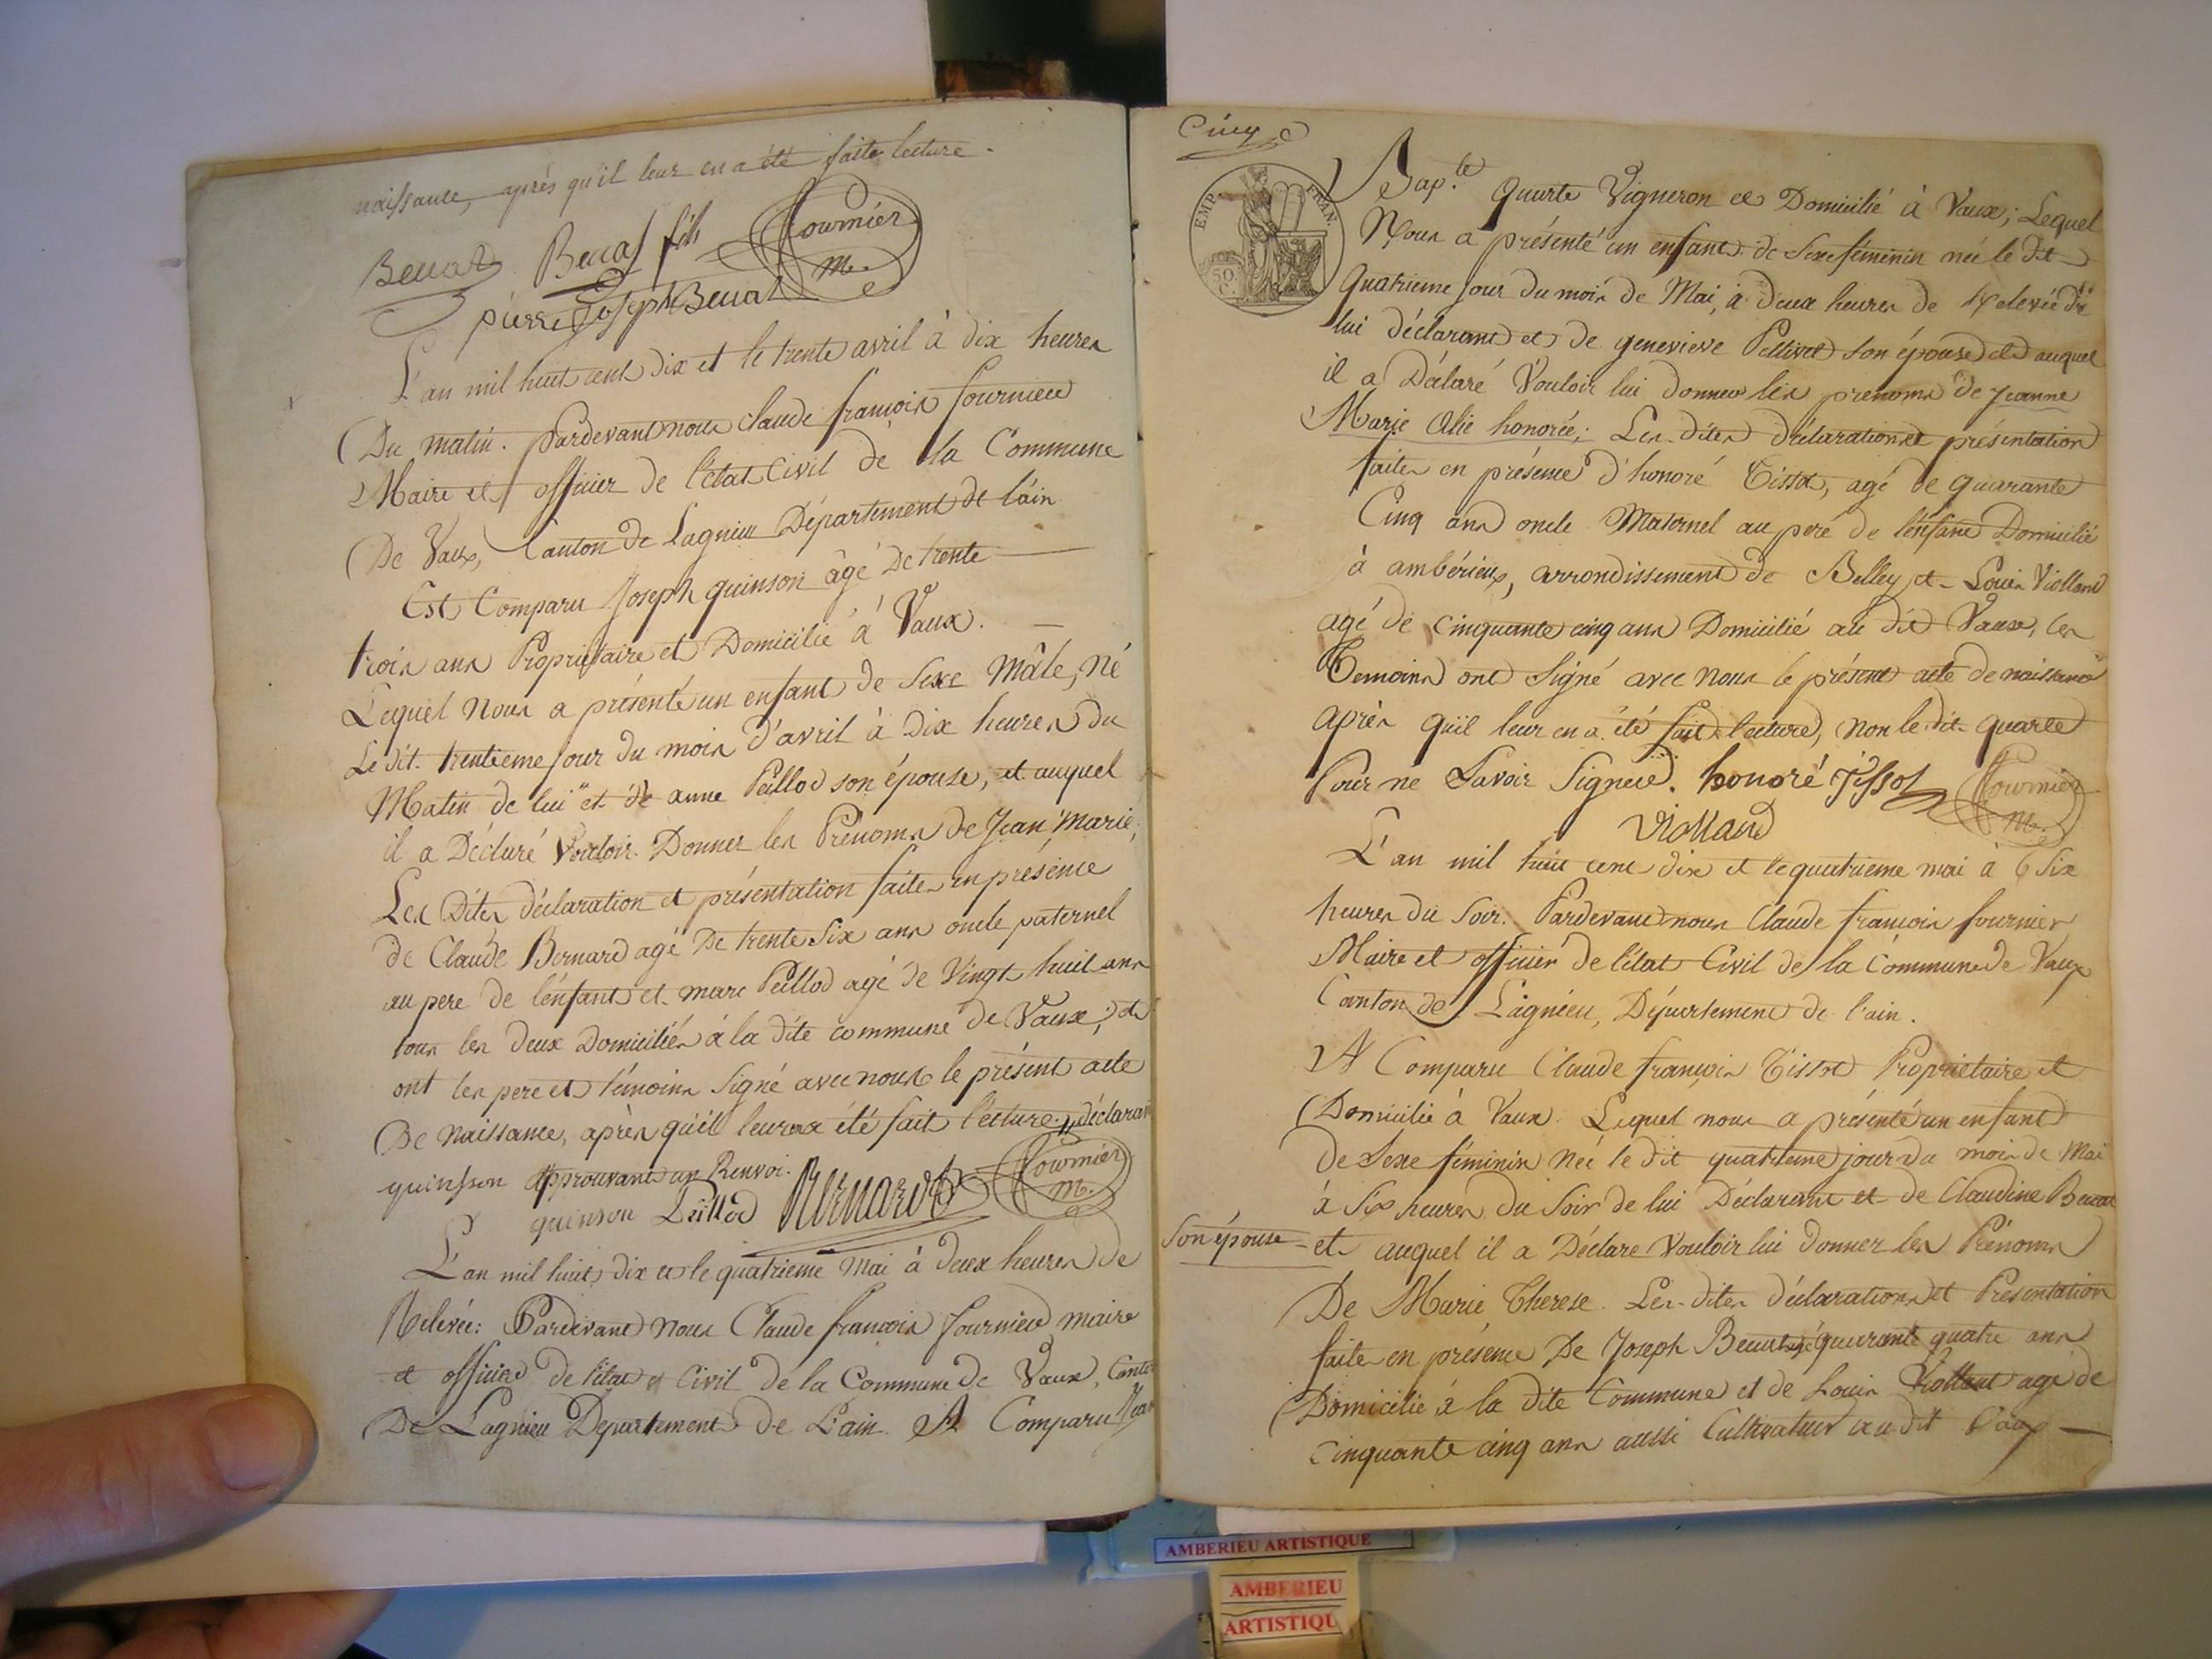 naissance, après qu'il leur en a été faite lecture.
Beuat Beuat fils fournier
m.
pierre Joseph Beuat
L'an mil huit cent dix et le trente avril à dix heures
Du matin. Pardevant nous Claude francois fournier
Maire et officier de l'état Civil de la Commune
De Vaux, Canton de Lagnieu Département de l'ain
Est Comparu Joseph quinson âgé De trente
trois ans Propriétaire et Domicilié à Vaux.
Lequel nous a présenté un enfant de Sexe Mâle, Né
Le dit trentieme Jour du mois d'avril à Dix heures du
Matin de lui et de anne Peillod son épouse, et auquel
il a Déclaré Vouloir Donner les Prénoms de Jean Marie;
Les Dites déclaration et présentation faites en présence
de Claude Bernard agé De trente Six ans oncle paternel
au pere de l'énfant et marc Peillod agé de Vingt huit ans
tous les deux Domiciliés à la dite commune de Vaux, et
ont les pere et témoins Signé avec nous le présent acte
De Naissance, après qu'il leur en a été fait lecture. déclarant
quinson Approuvant un Renvoi.
quinson Peillod Bernard fournier
m.
L'an mil huit dix et le quatrieme Mai à deux heures de
Relevée: Pardevant Nous Claude francois fournier maire
et officier de l'état Civil de la Commune de Vaux, Canton
De Lagnieu Departement de L'ain. A Comparu Jean
Cinq
EMP. FRAN.
50 C.
Bap.te quarte Vigneron et Domicilié à Vaux; Lequel
Nous a présenté un enfant de Sexe féminin née le Dit
Quatrieme Jour du mois de Mai, à deux heures de relevée de
lui déclarant et de genevieve Pellivet son épouse et auquel
il a Déclaré Vouloir lui donner les prenoms de Jeanne
Marie honorée; Les dites déclaration et présentation
faites en présence d'honoré Tissot, agé de quarante
Cinq ans oncle Maternel au pere de l'énfant Domicilié
à ambérieux, arrondissement de Belley et Louis Violland
agé de cinquante cinq ans Domicilié au dit Vaux, les
Temoins ont Signé avec nous le présent acte de naissance
après qu'il leur en a été fait lecture, non le dit quarte
Pour ne Savoir Signer. honoré Tissot fournier
m.
violland
L'an mil huit cent dix et le quatrieme mai à 6 Six
heures du Soir. Pardevant nous Claude francois fournier
Maire et officier de l'état Civil de la Commune de Vaux
Canton de Lagnieu, Département de l'ain.
A Comparu Claude françois Tissot Propriétaire et
Domicilié à Vaux. Lequel nous a présenté un enfant
De Sexe féminin Née le dit quatrieme jour du mois de Mai
à Six heures du Soir de lui Déclarant et de Claudine Beuat
Son épouse et auquel il a Déclaré Vouloir lui donner les Prénoms
De Marie Therese. Les dites déclarations et Présentation
faites en présence De Joseph Beuat agé quarante quatre ans
Domicilié à la dite Commune et de Louis Viollant agé de
Cinquante cinq ans aussi Cultivateur au dit Vaux
AMBERIEU ARTISTIQUE
AMBERIEU
ARTISTIQU